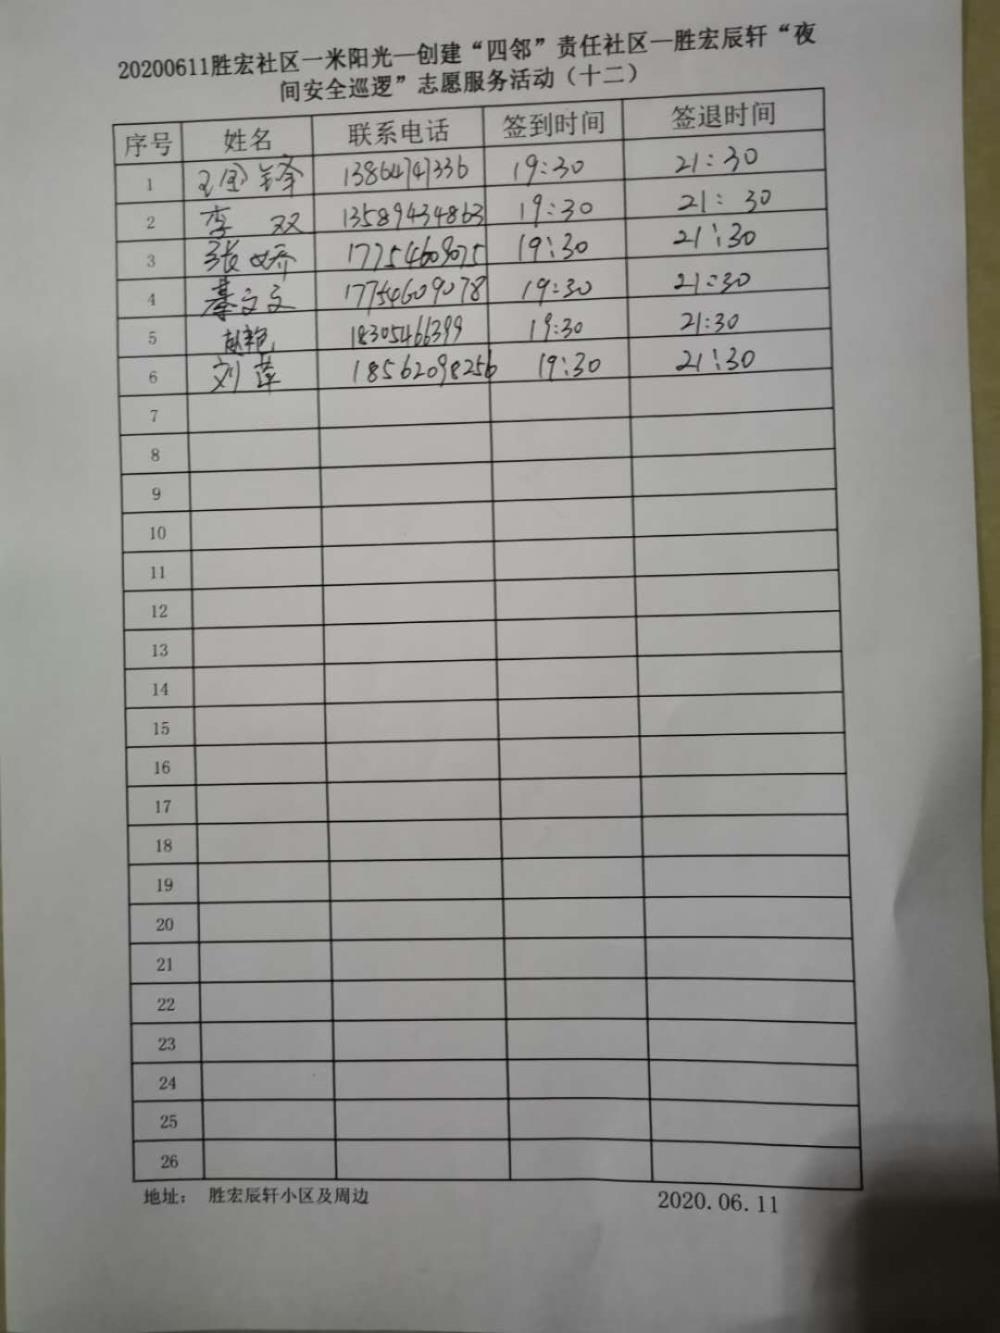 20200611胜宏社区一米阳光—创建“四邻”责任社区—胜宏辰轩“夜
间安全巡逻”志愿服务活动（十二）
序号 姓名 联系电话 签到时间 签退时间
1 王国锋 13864747336 19:30 21:30
2 李双 13589434863 19:30 21:30
3 张娇 17754609075 19:30 21:30
4 綦文文 17754609078 19:30 21:30
5 赵艳 18305466399 19:30 21:30
6 刘萍 18562098256 19:30 21:30
7
8
9
10
11
12
13
14
15
16
17
18
19
20
21
22
23
24
25
26
地址： 胜宏辰轩小区及周边 2020.06.11